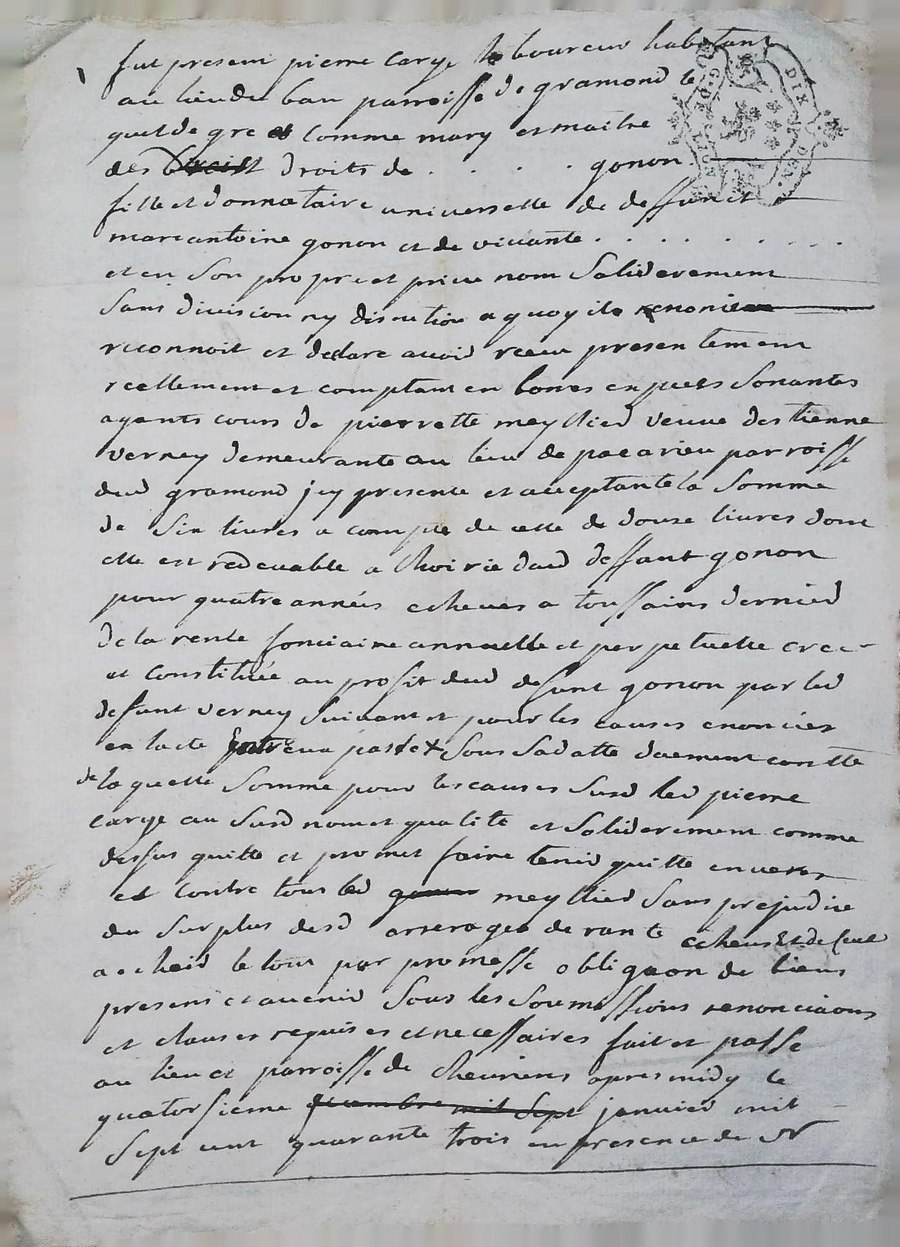 fut present pierre carge laboureur habitant
au lieu du ban parroisse de gramond le
quel de gre et comme mary et maitre
des droits de . . . . gonon
fille et donnataire universelle de deffunct
marcantoine gonon et de vivante . . . . . . . .
et en son propre et prive nom soliderement
sans division ny discution a quoy ils renonice
reconnoit et declare avoir receu presentement
reellement et comptant en bones especes sonantes
ayants cours de pierrette meyllier veuve destienne
verney demeurante au lieu de pacarieu parroisse
dud gramond jcy presente et acceptante la somme
de six livres a compte de celle de douze livres dont
elle est redevable a lhoirie dud deffunt gonon
pour quatre annés echeues a toussains dernier
de la rente fonciaire annuelle et perpetuelle cree
et constituée au profit dud defunt gonon par led
defunt verney suivant et pour les causes enoncées
en lacte entreux passe sous sa datte duement conste
de laquelle somme pour les causes susd led pierre
carge au susd nom et qualité et soliderement comme
dessus quitte et promet faire tenir quitte envers
et contre tous lad meyllier sans prejudice
du surplus desd arrerages de rante echeus et de ceux
a echeoir le tout par promesse obligaon de biens
presens et avenir sous les soumissions renonciaons
et clauses requises et necessaires fait et passe
au lieu et parroisse de chevrieres apres midy le
quatorsieme janvier mil
sept cent quarante trois en presence de Sr
DIX DEN.